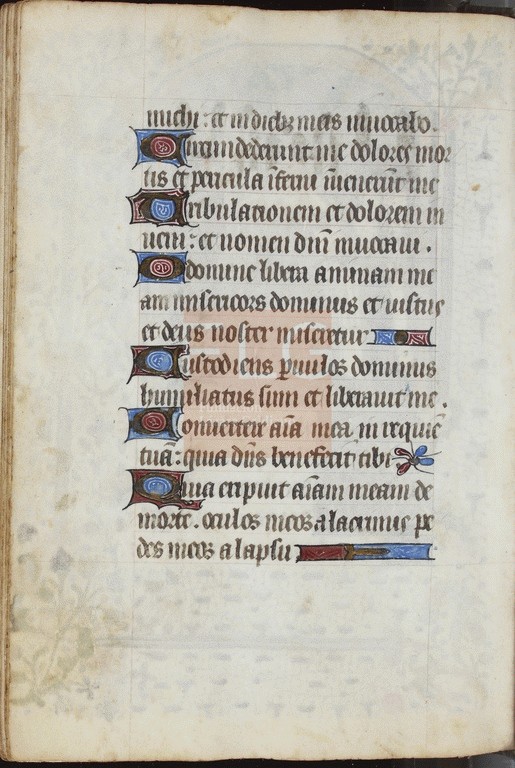 michi : et in dieb; meis inuocabo .
Circumdederunt me dolores mor
tis et pericula īferni īuenerūt me
Tribulationem et dolorem in
ueni : et nomen dnī inuocaui .
O domine libera animam me
am misericors dominus et iustus
et deus noster miseretur
Custodiens ꝑuulos dominus
humiliatus sum et liberauit me .
Conuertere aīa mea in requiē
tuā : quia dn̄s benefecit tibi
Quia eripuit aīam meam de
morte . oculos meos a lacrimis pe
des meos a lapsu